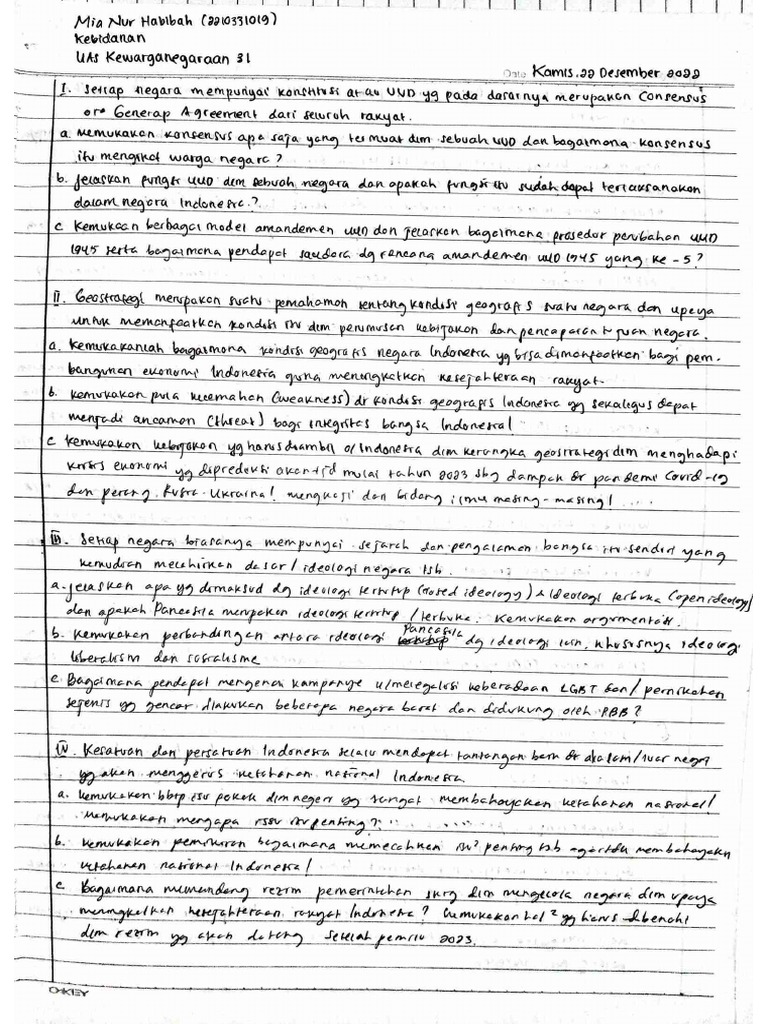 Mia Nur Habibah (2210331019)
Kebidanan
UAS Kewarganegaraan 31
Date Kamis, 22 Desember 2022
I. Setiap negara mempunyai konstitusi atau UUD yg pada dasarnya merupakan Consensus
or Generap Agreement dari seluruh rakyat.
a. Kemukakan konsensus apa saja yang termuat dlm sebuah UUD dan bagaimana konsensus
itu mengikat warga negara?
b. Jelaskan fungsi UUD dlm sebuah negara dan apakah fungsi itu sudah dapat terlaksanakan
dalam negara Indonesia.?
c Kemukaan berbagai model amandemen UUD dan jelaskan bagaimana prosedur perubahan UUD
1945 serta bagaimana pendapat saudara dg rencana amandemen UUD 1945 yang ke-5?
II. Geostrategi merupakan suatu pemahaman tentang kondisi geografis suatu negara dan upaya
untuk memanfaatkan kondisi itu dlm perumusan kebijakan dan pencapaian tujuan negara.
a. Kemukakanlah bagaimana kondisi geografis negara Indonesia yg bisa dimanfaatkan bagi pem-
bangunan ekonomi Indonesia guna meningkatkan kesejahteraan rakyat.
b. Kemukakan pula kelemahan (weakness) dr kondisi geografis Indonesia yg sekaligus dapat
menjadi ancaman (threat) bagi integritas bangsa Indonesia!
c Kemukakan kebijakan yg harus diambil o/ Indonesia dlm kerangka geostrategi dlm menghadapi
krisis ekonomi yg diprediksi akan tjd mulai tahun 2023 sbg dampak dr pandemi Covid-19
dan perang Rusia-Ukraina! mengkaji dari bidang ilmu masing-masing! ....
III. Setiap negara biasanya mempunyai sejarah dan pengalaman bangsa itu sendiri yang
kemudian melahirkan dasar/ ideologi negara tsb.
a. Jelaskan apa yg dimaksud dg ideologi tertutup (closed ideology) & Ideologi terbuka (open ideology)
dan apakah Pancasila merupakan ideologi tertutup /terbuka. Kemukakan argumentasi.
b. Kemukakan perbandingan antara ideologi Pancasila dg ideologi lain, khususnya ideologi
liberalism dan sosialisme
c Bagaimana pendapat mengenai kampanye u/melegalisi keberadaan LGBT dan/ pernikahan
sejenis yg gencar dilakukan beberapa negara barat dan didukung oleh PBB?
IV. Kesatuan dan persatuan Indonesia selalu mendapat tantangan baik dr dalam/luar negri
yg akan menggerus ketahanan nasional Indonesia.
a. Kemukakan bbrp isu pokok dlm negeri yg sangat membahayakan ketahanan nasional/
kemukakan mengapa isu itu penting?
b. Kemukakan pemikiran bagaimana memecahkan isu² penting tsb agar tdk membahayakan
ketahanan nasional Indonesia!
c Bagaimana memandang rezim pemerintahan skrg dlm mengelola negara dlm upaya
meningkatkan kesejahteraan rakyat Indonesia? Kemukakan hal² yg harus dibenahi
dlm rezim yg akan datang setelah pemilu 2023.
O-KEY